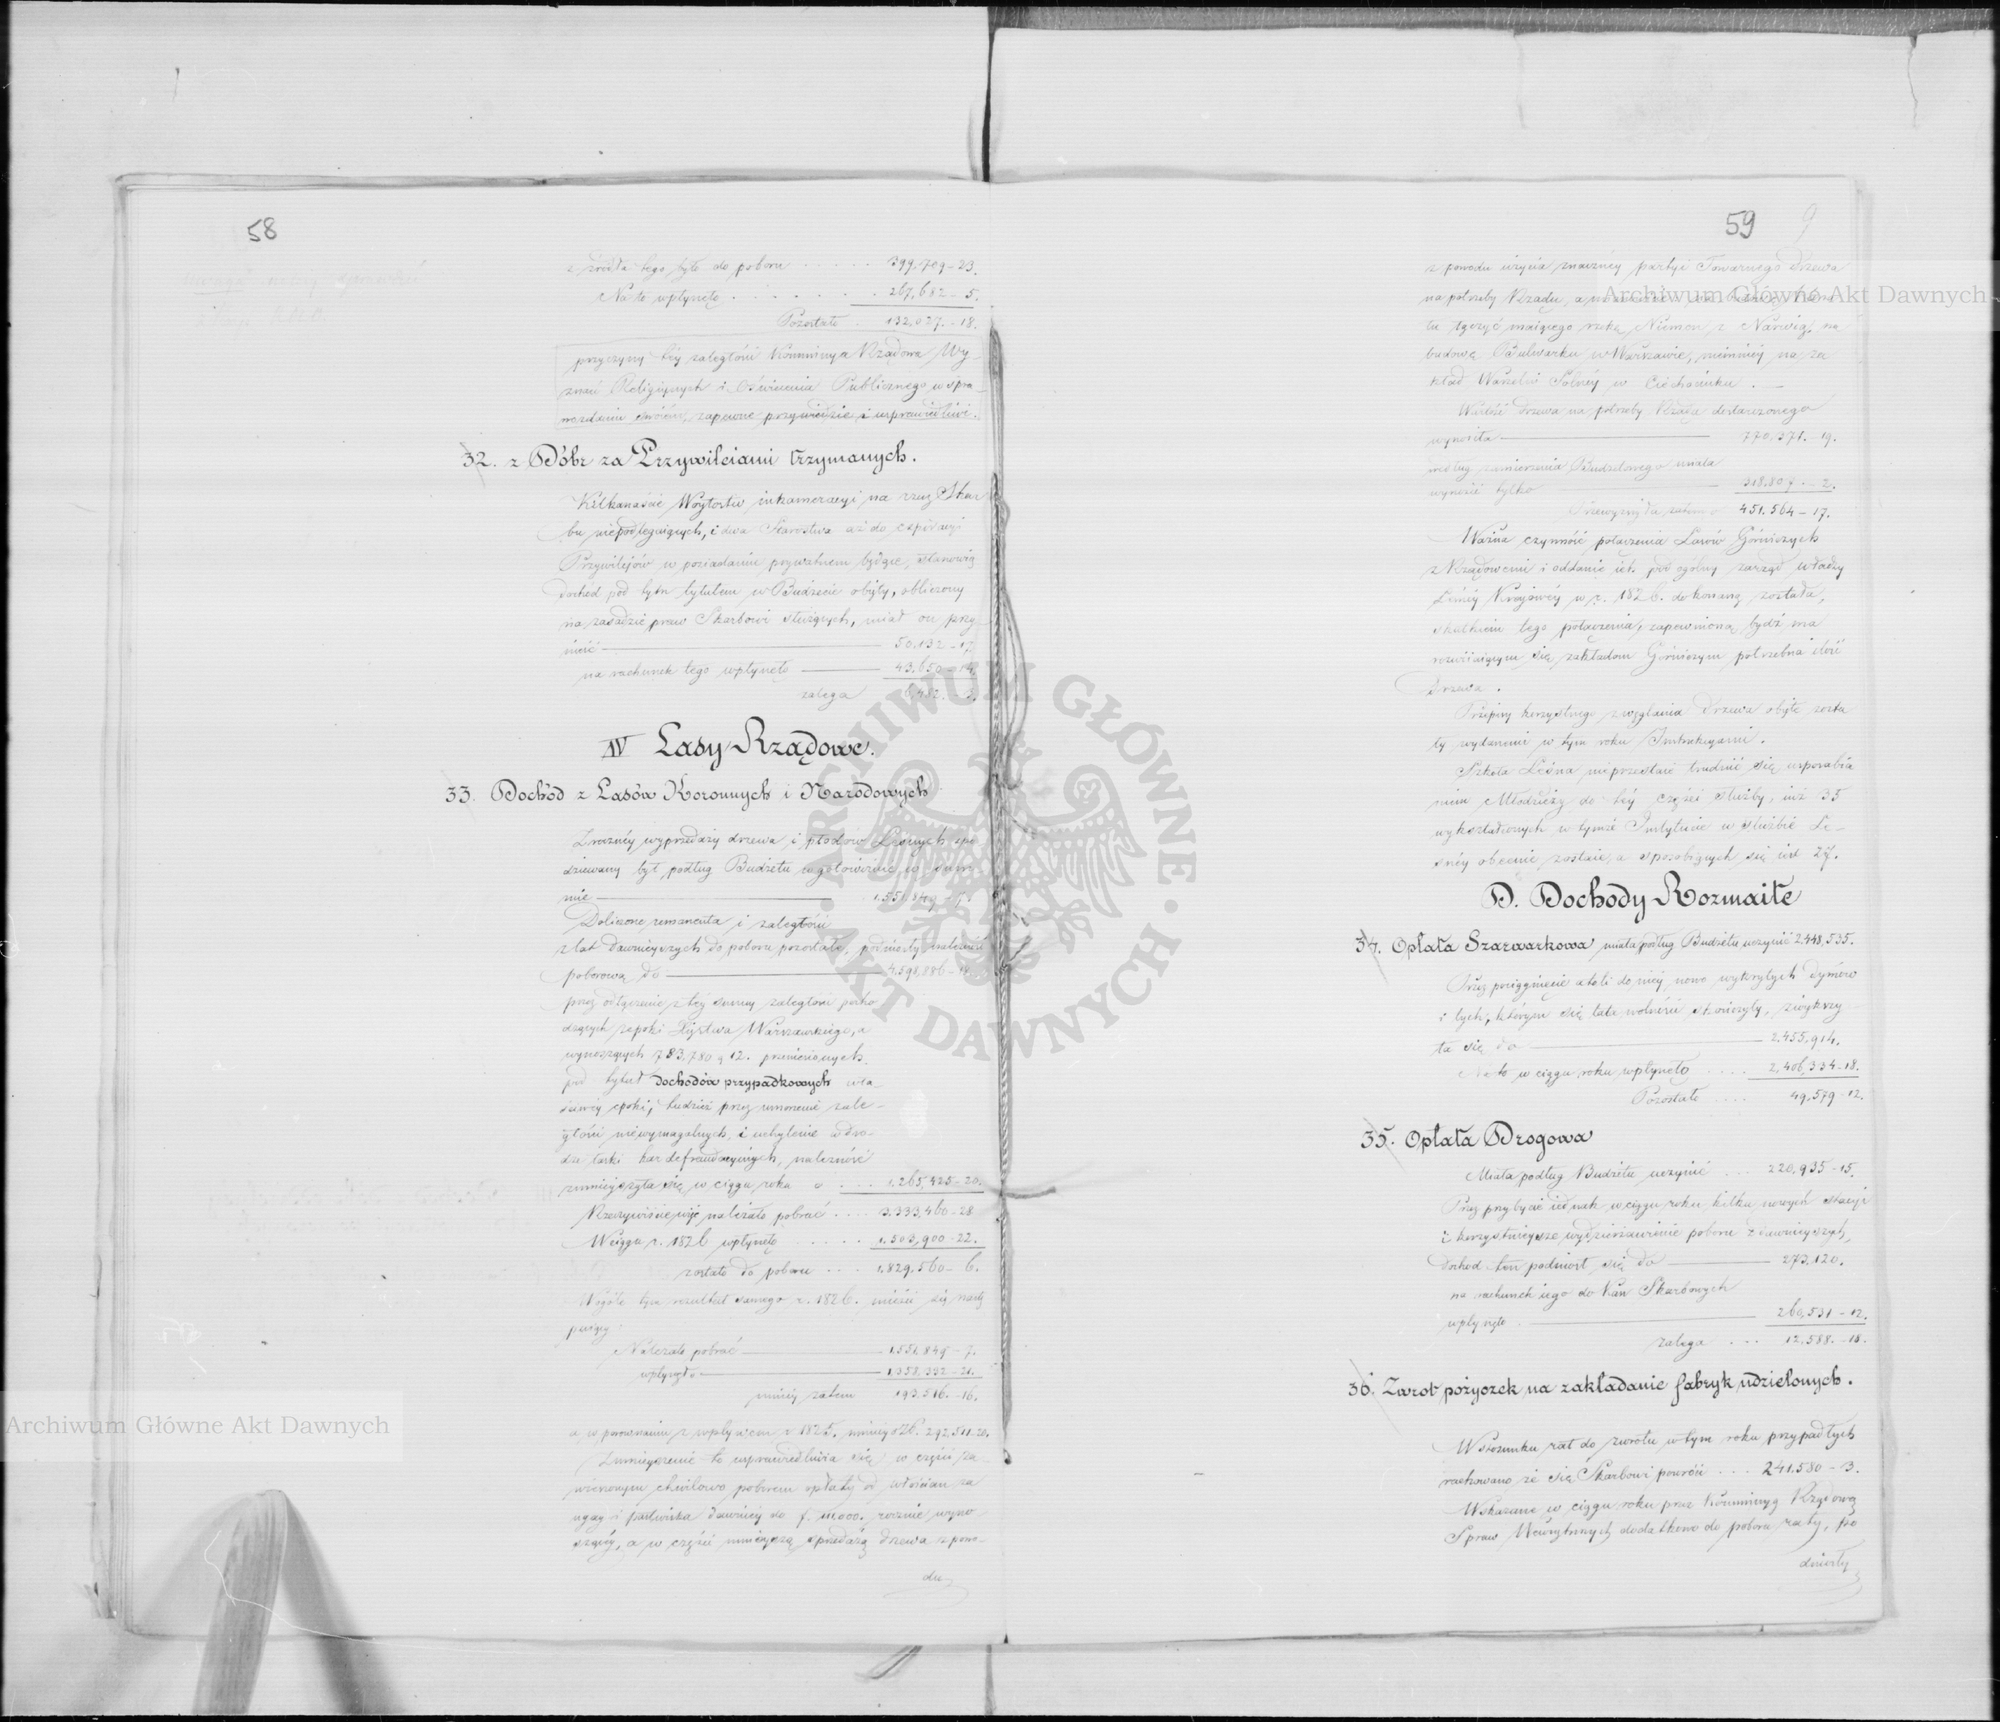 58
z źródła tego było do poboru . . . . . 399,709-23.
Na to wpłynęło . . . . . . . 267,682-5.
Pozostało . 132,027.-18.
przyczyny téy zaległości Kommissya Rządowa Wy-
znań Religiynych i Oświecenia Publicznego w spra-
wozdaniu swoiém, zapewne przywiedzie i usprawiedliwi.
32. z Dóbr za Przywileiami trzymanych.
Kilkanaście Woytostw inkameracyi na rzecz Skar
bu niepodlegaiących, i dwa Starostwa aż do expiracyi
Przywilejów w posiadaniu prywatnem będące, stanowią
dochód pod tym tytułem w Budżecie obięty, obliczony
na zasadzie praw Skarbowi służących, miał on przy
nieść 50.132-17
na rachunek tego wpłynęło 43,650-14.
zalega 6,482.-3.
IV Lasy Rządowe.
33. Dochód z Lasów Koronnych i Narodowych
Z roczney wyprzedaży drzewa i płodów Leśnych spo
dziewany był podług Budżetu w gotowiźnie w sum-
mie 1.551,849-7.
Doliczone remanenta i zaległości
z lat dawnieyszych do poboru pozostałe, podniosły należność
poborową do 4.598,886-18
przez odłączenie z téy summy zaległości pocho
dzących z epoki Xięstwa Warszawskiego, a
wynoszących 783,780 g 12. przeniesionych
pod tytuł dochodów przypadkowych wła-
ściwéy epoki, tudzież przez umorzenie zale-
głości niewymagalnych, i uchylenie w dro-
dze łaski kar defraudacyinych, należność
zmnieyszyła się w ciągu roku o . . . 1.265,425-20.
Rzeczywiście więc należało pobrać . . . . 3.333,460-28
W ciągu r. 1826 wpłynęło . . . . . 1.503,900-22.
zostało do poboru . . . 1.829,560-6.
W ogóle tym rezultat samego r. 1826. mieści się nastę
puiący:
Należało pobrać 1.551,849-7.
wpłynęło 1,358,332-21.
mniéy zatem 193,516.-16.
a w porównaniu z wpływem r. 1825. mniéy o zł. 292,511-20.
Zmnieyszenie to usprawiedliwia się w części za
wieszonym chwilowo poborem opłaty od włościan za
ugay i pastwiska dawniéy do f. 111.000. rocznie wyno-
szącéy, a w części mnieyszą sprzedażą drzewa z powo-
du
59 9
z powodu użycia znaczney partyi Towarnego drzewa
na potrzeby Rządu, a mianowicie na budowę Kana
łu łączyć maiącego rzekę Niemen z Narwią, na
budowę Bulwarku w Warszawie, niemniéy na za
kład Warzelni Solnéy w Ciechocinku.
Wartość drzewa na potrzeby Rządu dostarczonego
wynosiła 770,371.-19.
według zamierzenia Budżetowego miała
wynosić tylko 318.807.-2.
Przewyżyła zatem o 451.564-17.
Ważna czynność połączenia Lasów Górniczych
z Rządowemi i oddanie ich pod ogólny zarząd władzy
Leśnéy Kraiowéy w r. 1826. dokonaną została,
skutkiem tego połączenia, zapewnioną bydź ma
rozwiiaiącym się zakładom Górniczym potrzebna ilość
drzewa.
Przepisy korzystnego zwęglania drzewa obięte zosta
ły wydanemi w tym roku Instrukcyami.
Szkoła Leśna nieprzestaie trudnić się usposabia
niem Młodzieży do téy części służby, iuż 35
wykształconych w tymże Instytucie w służbie Le-
śnéy obecnie zostaie, a sposobiących się iest 27.
D. Dochody Rozmaite
34. Opłata Szarwarkowa miała podług Budżetu uczynić 2.448,535.
Przez pociągnięcie atoli do niéy nowo wykrytych dymów
i tych, którym się lata wolności skończyły, zwiększy
ła się do 2.455,914.
Na to w ciągu roku wpłynęło . . . . 2,406,334-18.
Pozostało . . . . 49,579-12.
35. Opłata Drogowa
Miała podług Budżetu uczynić . . . 220.935-15.
Przez przybycie iednak w ciągu roku kilku nowych stacyi
i korzystnieysze wydzierżawienie poboru z dawnieyszych,
dochód ten podniosł się do 273.120.
na rachunek iego do Kass Skarbowych
wpłynęło 260,531-12.
zalega . . . 12.588.-18.
36. Zwrot pożyczek na zakładanie fabryk udzielonych.
W stosunku rat do zwrotu w tym roku przypadłych
rachowano że się Skarbowi powróci . . . 241.580-3.
Wskazane w ciągu roku przez Kommissyą Rządową
Spraw Wewnętrznych dodatkowo do poboru raty, po
dniosły
Archiwum Główne Akt Dawnych
Archiwum Główne Akt Dawnych
ARCHIWUM GŁÓWNE · AKT DAWNYCH ·